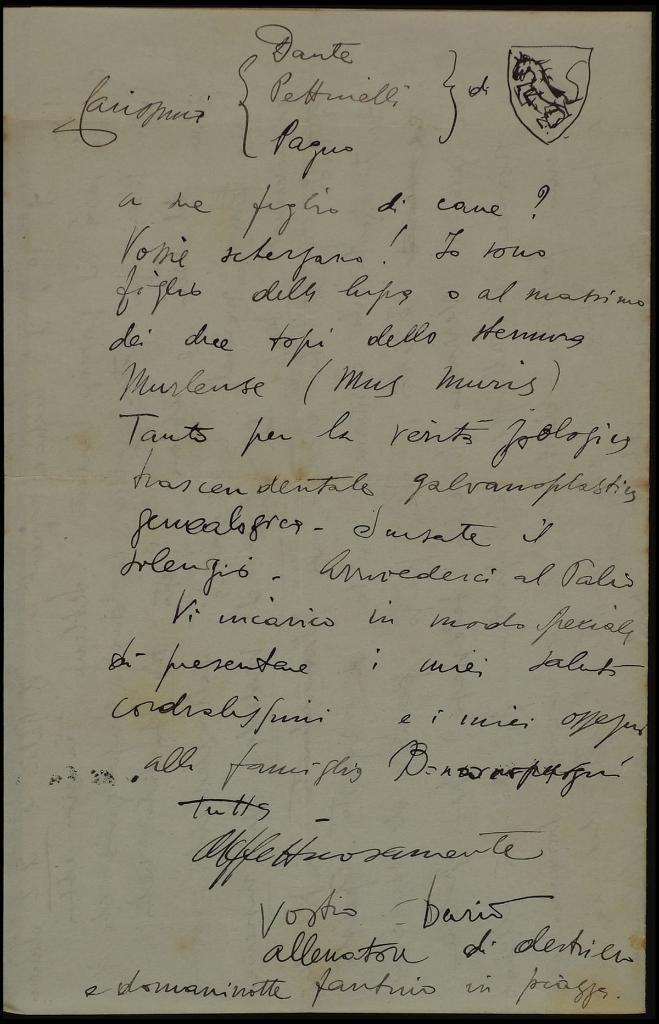 Dante
Carissimi { Pettinelli } di
Pagno
a me figlio di cane?
Vossie scherzano! Io sono
figlio della lupa o al massimo
dei due topi dello stemma
Murlense (Mus Muris)
Tanto per la verità zoologica
trascendentale galvanoplastica
genealogica - Scusate il
silenzio. Arrivederci al Palio
Vi incarico in modo speciale
di presentare i miei saluti
cordialissimi e i miei ossequi
alla famiglia
tutta -
Affettuosamente
Vostro Dario
allenatore di destriero
e domaninotte fantino in piazza.